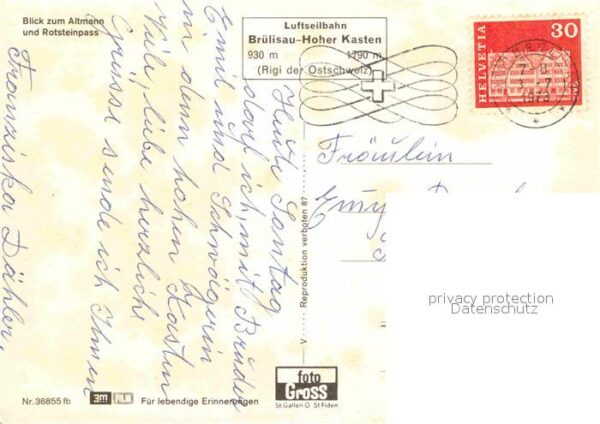 Blick zum Altmann
und Rotsteinpass
Luftseilbahn
Brülisau-Hoher Kasten
930 m 1790 m
(Rigi der Ostschweiz)
HELVETIA
30
Heute Sontag
darf ich, mit Bruder
Emil und Schwägerin
in denn hohen Kasten
Viele, liebe herzliche
Grüsse sende ich Ihnen
Franziska Dähler.
Fräulein
Reproduktion verboten 87
V
privacy protection
Datenschutz
Nr. 36855 fb
3M FILM
Für lebendige Erinnerungen
foto
Gross
St Gallen O St Fiden